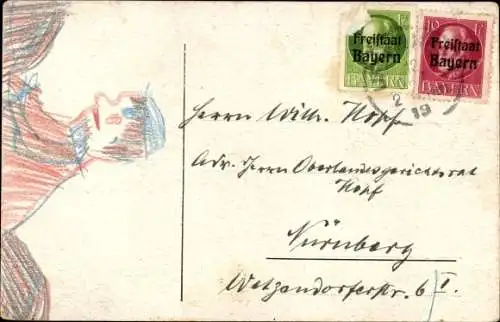 Freistaat
Bayern
BAYERN
10 Pf
Freistaat
Bayern
BAYERN
2
19
Herrn Wilh. Hopf
Adr. Herrn Oberlandesgerichtsrat
Hopf
Nürnberg
Wetzendorferstr. 6 I.